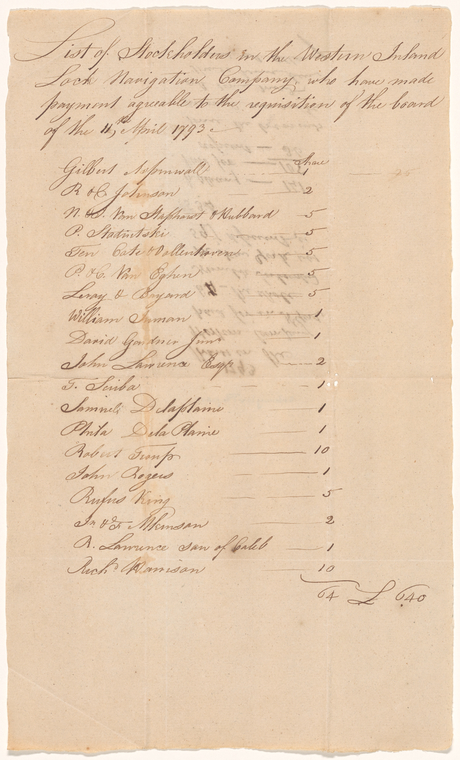 List of Stockholders in the Western Inland
Lock Navigation Company who have made
payment agreable to the requisition of the board
of the 4th April 1793.
Share
Gilbert Aspinwall 1
R & C Johnson 2
N. & J. Van Staphorst & Hubbard 5
P. Stadnitski 5
Ten Cate & Vollenhoven 5
P. & C. Van Eghen 5
Leray & Bayard 5
William Inman 1
David Gardner Junr 1
John Lawrence Esqr 2
G. Scriba 1
Samuel Delaplaine 1
Phila DelaPlaine 1
Robert Troup 10
John Rogers 1
Rufus King 5
Jn & F. Atkinson 2
R. Lawrence son of Caleb 1
Richd Harrison 10
64 £ 640